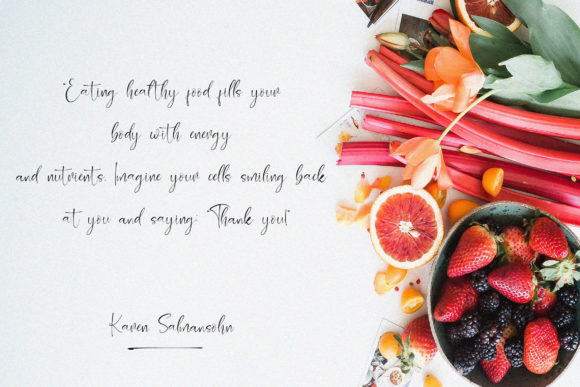 "Eating healthy food fills your
body with energy
and nutrients. Imagine your cells smiling back
at you and saying: "Thank you!"
Karen Salmansohn